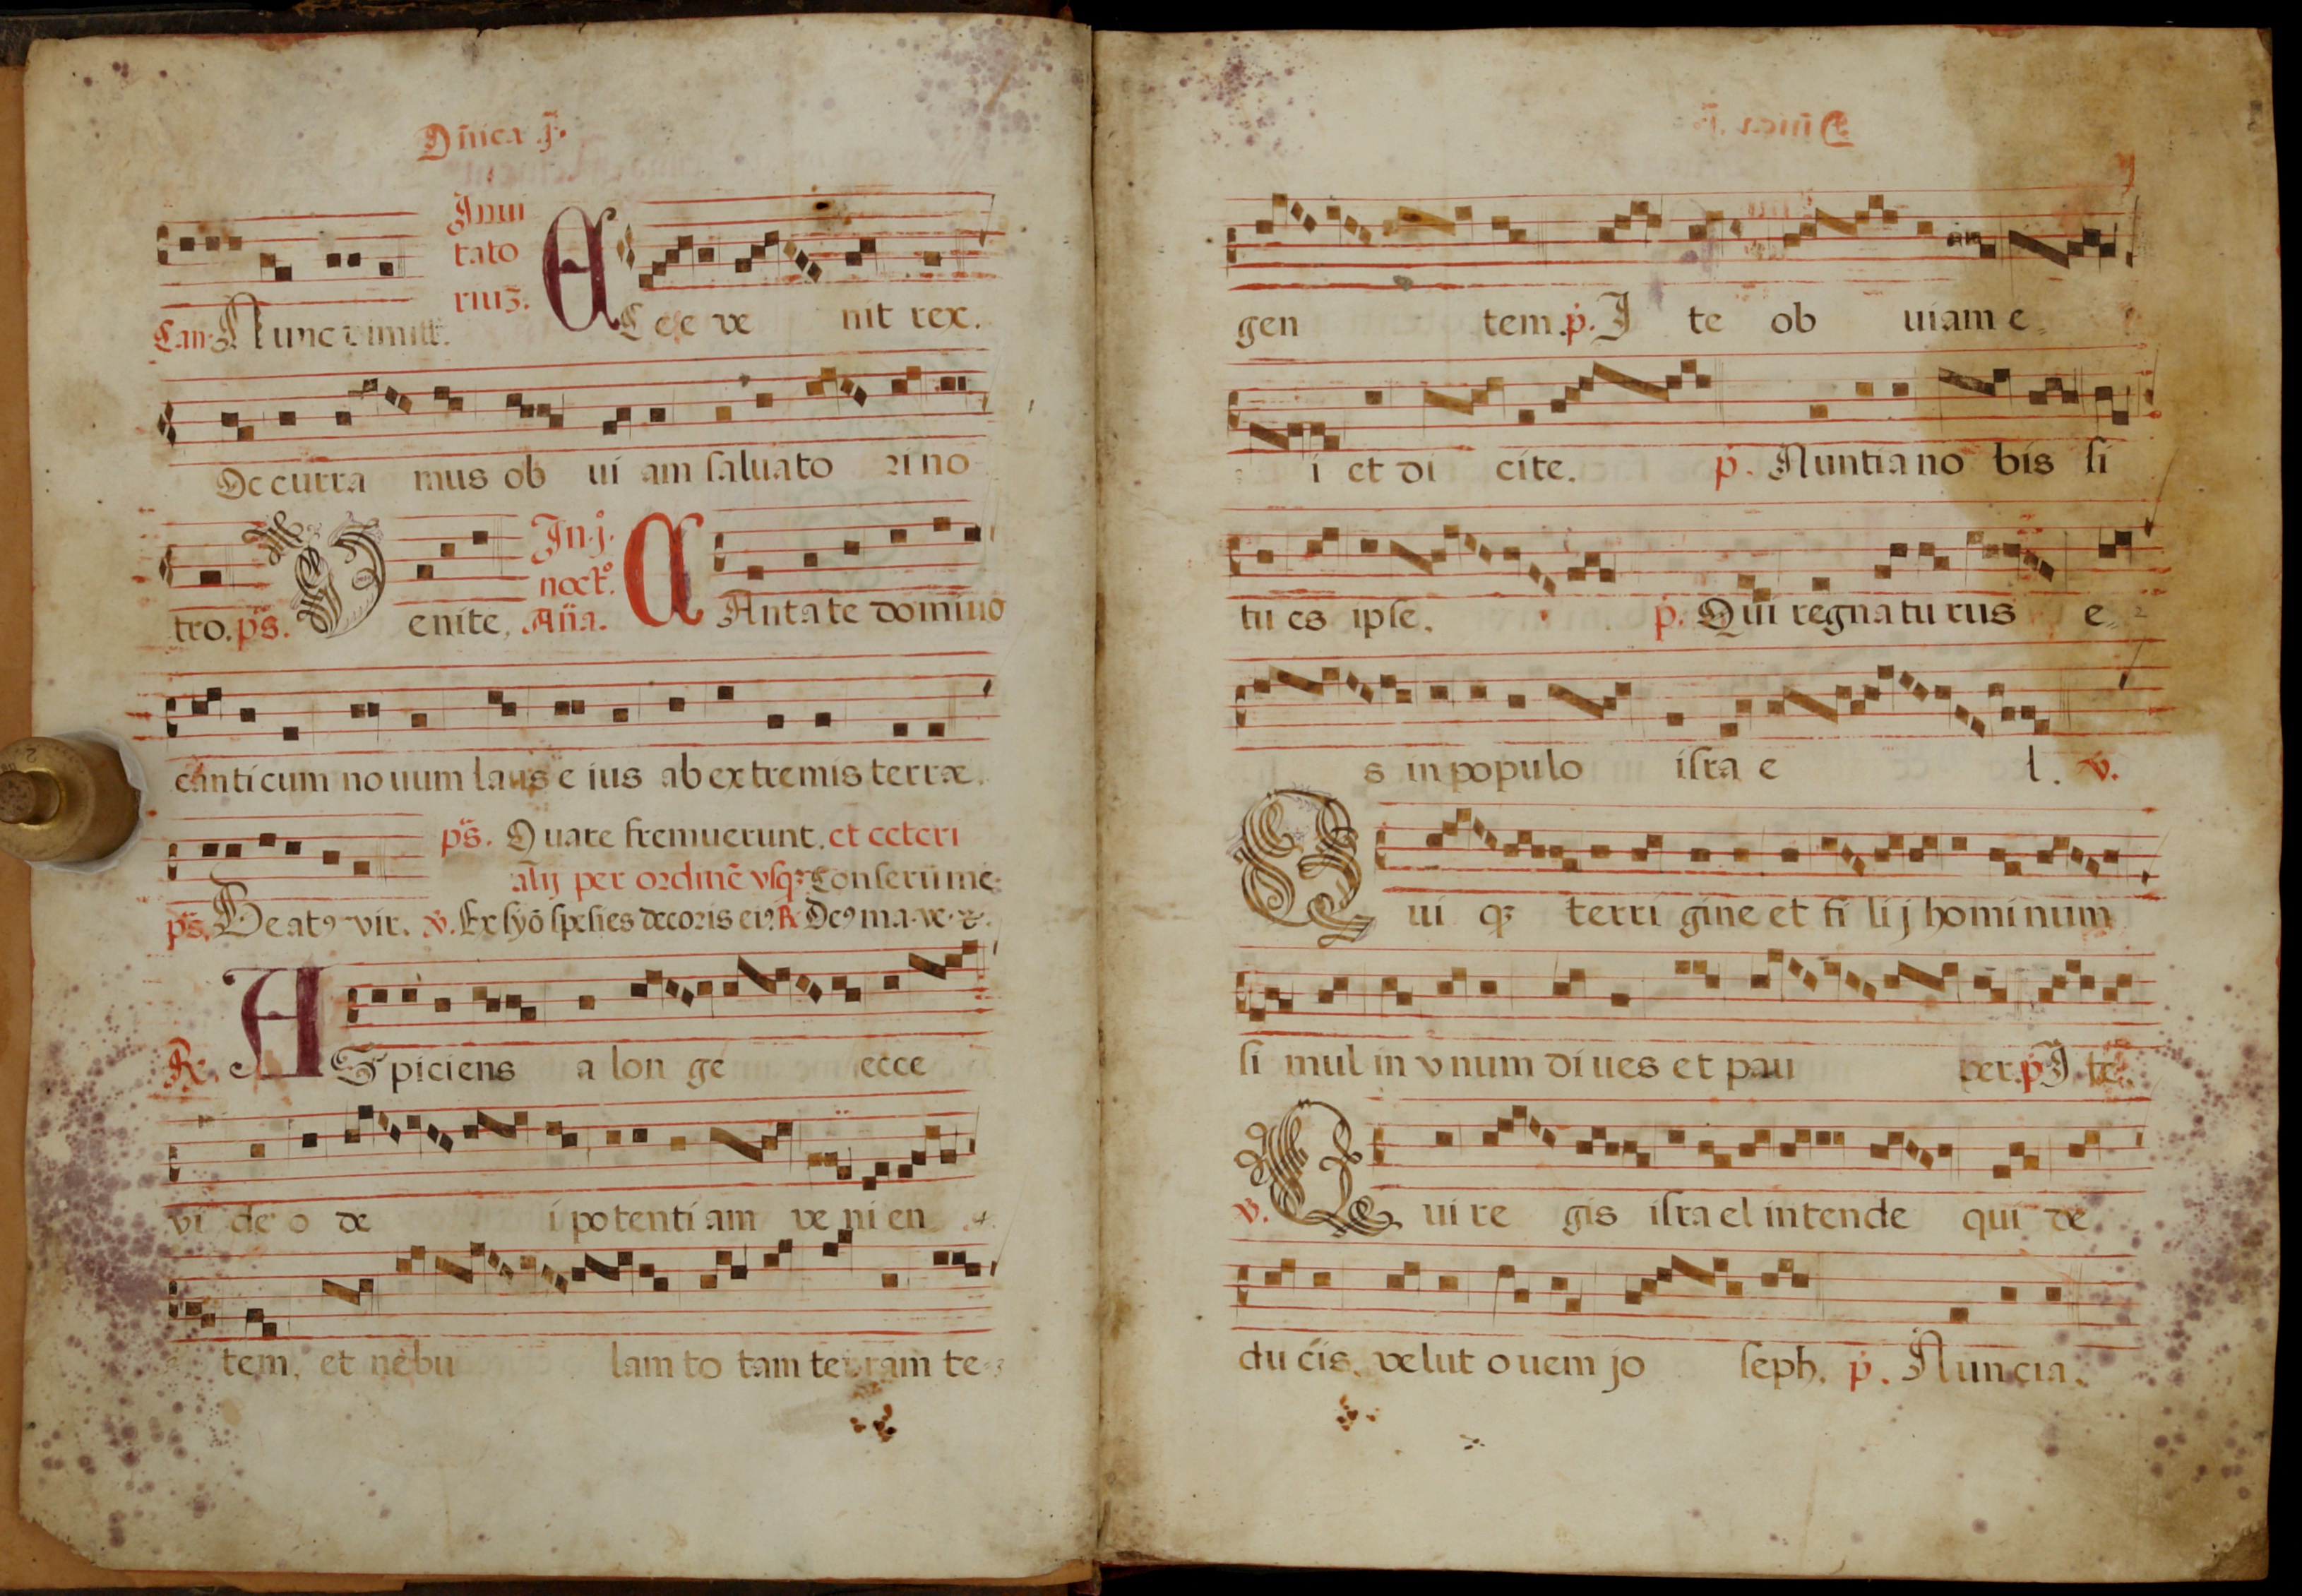 Dñica .j.
Inui
tato
riuʒ.
Can. Nunc dimitt.
Ecce ve nit rex.
Occurra mus ob ui am saluato ri no
tro. ps. Venite, In .j. noct.º Aña. CAntate domino
canticum no uum laus e ius ab extremis terræ.
ps. Quare fremuerunt. et ceteri
alij per ordinē vsqʒ Conserua me.
ps. Beatꝰ vir. ℣. Ex syō spesies decoris eiꝰ. ℟. Deꝰ ma. ve.
℟. ASpiciens a lon ge ecce
vi de o de i potenti am ve ni en
tem, et nebu lam to tam terram te
gen tem. p. I te ob uiam e
i et di cite. p. Nuntia no bis si
tu es ipse. p. Qui regnatu rus e
s in populo isra e l. ℣.
Qui qʒ terri gine et fi li j hominum
si mul in vnum di ues et pau per. p. I te.
℣. Qui re gis israel intende qui de
du cis, velut ouem jo seph. p. Nuncia.